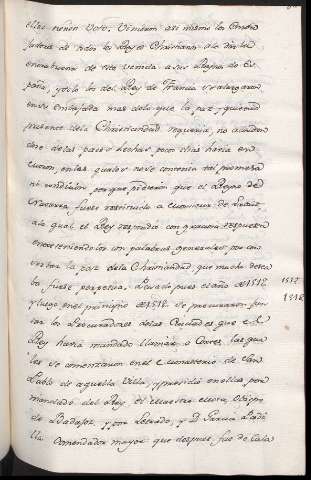 ellos tienen Voto. Vinieron asi mismo los Emba
jadores de todos los Reyes Christianos a la
enorabuena de esta venida a sus Reynos de Es
paña, y solo los del Rey de Francia se alargaron
en su Embajada mas de lo que la paz y quietud
presente de la Christiandad requeria, no acordan
dose de las paces hechas pocos dias havia en
en las quales no se contenia tal promesa
ni condicion porque pidieron que el Reyno de
Navarra fuese restituido a
a lo qual el Rey respondió con graciosa respuesta
entreteniendolos con palabras generales por con
servar la paz de la Christiandad, que mucho desea
ba fuese perpetua. Pasado pues el año de 1517 1517
y luego en el principio de 1518 se procuraron jun 1518
tar los Procuradores de las Ciudades que el
Rey havia mandado llamar a Cortes, las qua
les se comenzaron en el Monasterio de San
Pablo de aquella Villa, y presidió en ellas por
mandado del Rey el Maestro Mota, Obispo
de Badajoz, y por Letrado, y D. Garcia Padi
lla Comendador mayor que despues fue de Cala